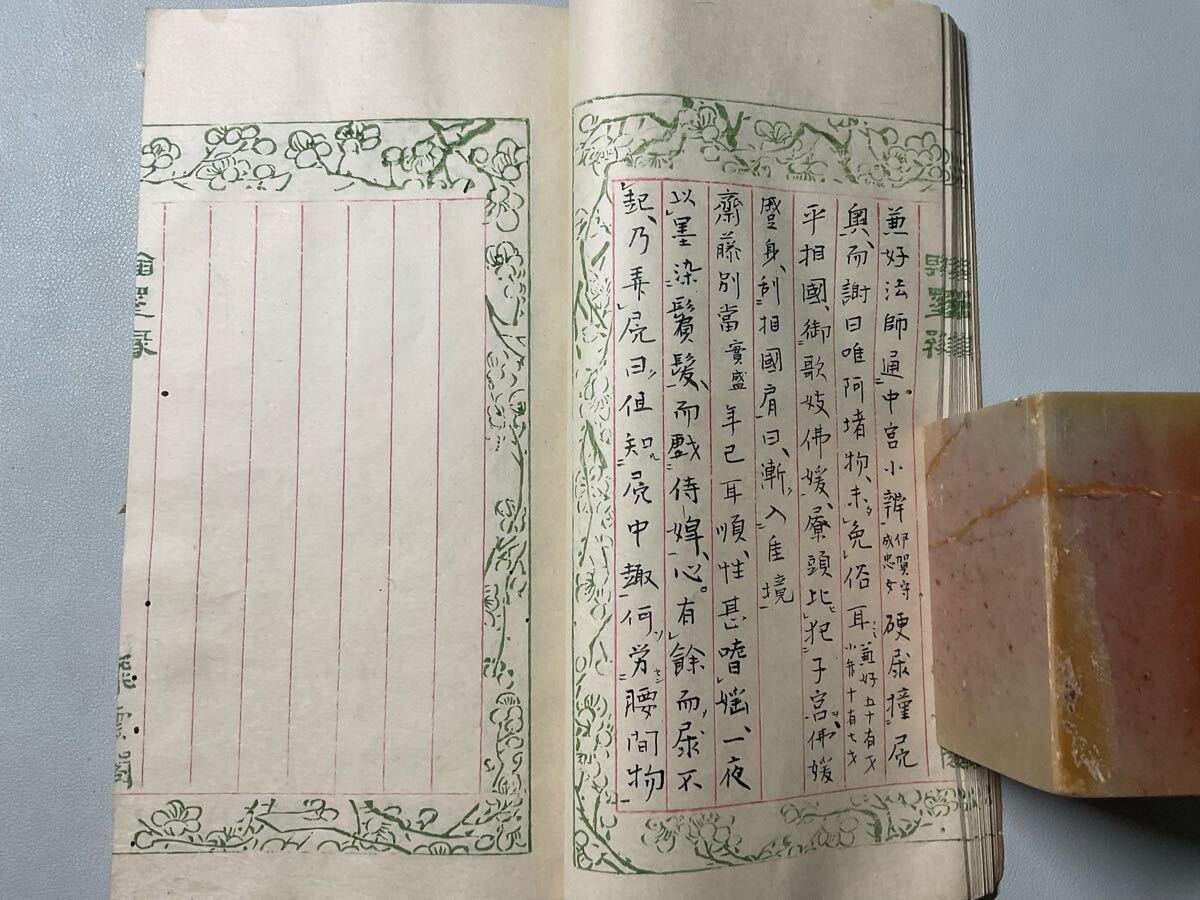 兼好法師通中宮小辨伊賀守成忠女硬尿撞屍
輿、而謝曰唯阿堵物、未免俗耳兼好五十有才小弁十有七才
平相國、御歌妓佛媛、尞頭比犯子宮、佛媛
身、刮相國肩曰、漸入佳境
齋藤別當實盛年已耳順、性甚嗜婬、一夜
以墨染鬢髮、而戲侍婢、心有餘而尿不
起、乃弄屍曰、但知屍中趣何労腰間物